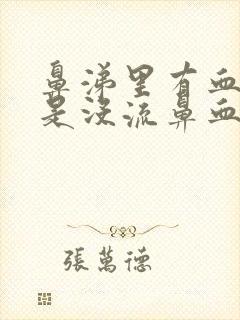 鼻涕里有血
是没流鼻血
張萬德